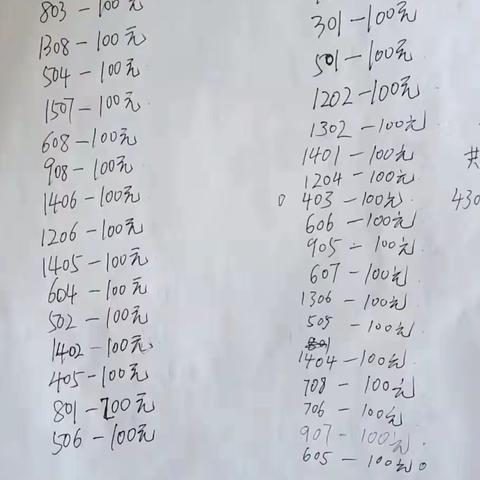 803-100元
1308-100元
504-100元
1507-100元
608-100元
908-100元
1406-100元
1206-100元
1405-100元
604-100元
502-100元
1402-100元
405-100元
801-100元
506-100元
301-100元
501-100元
1202-100元
1302-100元
1401-100元
1204-100元
403-100元
606-100元
905-100元
607-100元
1306-100元
505-100元
1404-100元
708-100元
706-100元
907-100元
605-100元。
共
430